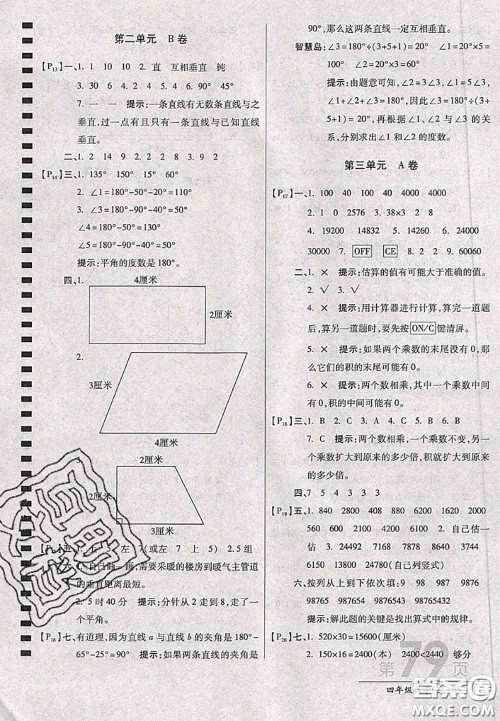 第二单元 B卷
[P13]一、1. 1 10 2. 直 互相垂直 钝
3. 4 90° 4. 2 5. 4 6. 90° 45°
7. 一 一 提示:一条直线有无数条直线与之
垂直,过一点有且只有一条直线与已知直线
垂直。
二、1. 2 14 9 2. 2 8
[P14]三、1. 135° 15° 15° 60°
2. ∠1=180°-50°-20°=110°
∠3=180°-50°-110°=20°
∠4=180°-20°-110°=50°
∠5=180°-50°=130°
提示:平角的度数是180°。
四、1. 4厘米
2厘米
2.
3厘米
4厘米
4厘米
3厘米
2厘米
五、1. 上 5 左 7(或左 7 上 5) 2. 5组
六、1. 自己画一画。 提示:
需要采暖的楼房到暖气主管道
的垂直距离最短。
2. 5时40分 提示:分针从2走到8,走了
30分。
[P16]七、有道理,因为直线a与直线b的夹角是180°-
45°-45°=90° 提示:直线的夹角是
90°,那么这两条直线一定互相垂直。
智慧岛:∠3=180°÷(3+5+1)=20°
∠1=5∠3=100° ∠2=180°-100°=80°
提示:由题意可知,∠2+∠1=180°,
∠1+∠1÷5+∠3=180°,因此∠2=4∠3,
再根据∠1=5∠3,∠2=4∠3,∠3=20°,
分别求出∠1和∠2的度数。
第三单元 A卷
[P17]一、1. 100 40 40 4000 4000
2. 1 0 2576 3. 38×3 2 8
4. 19200 14832 5. 120 6. 24000
30000 7. OFF CE 8. > < >
二、1. × 提示:估算的值有可能大于准确的值。
2. √ 3. √
4. × 提示:用计算器进行计算,算完一道题
后,算另一道题时,要先按ON/C键清屏。
5. × 提示:如果两个乘数的末尾没有0,那
么它们的积的末尾可能有0。
6. × 提示:两个数相乘,如果两个数中间有
0,积的中间不一定有0。
[P18]三、1. B 2. C 3. A 4. B 5. A 6. C
7. C 提示:两个数相乘,一个乘数不变,另一
个乘数扩大到原来的多少倍,积就扩大到原来
的多少倍。
四、7 5 4 3 2
[P19]五、1. 840 600 32000 640 2000
8100 560 6300 2. 自己估一
估。 3. 24492 17766 38480 6474
6150 7350(自己列竖式)
六、按从上到下依次填。9 98 987 9876
98765 987654 9876543 98765432
提示:解此题的关键是找出算式中的规律。
[P20]七、1. 520×30=15600(厘米)
2. 150×16=2400 2400<2440 够分
第79页
四年级
答案圈
MXQE.COM